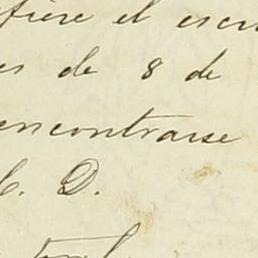 fiere el escri
es de 8 de
encontrarse
C. D.